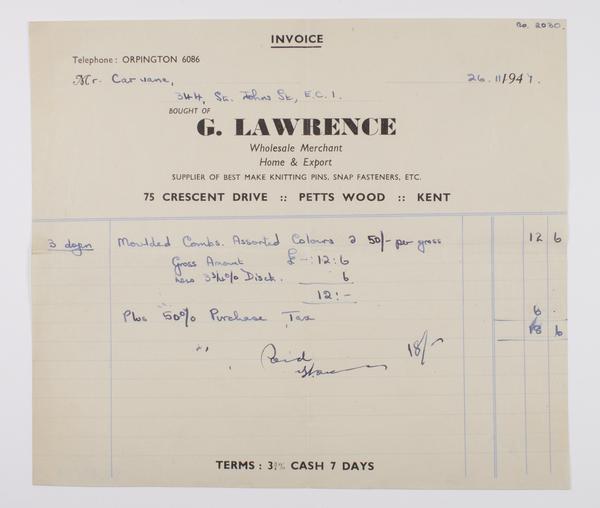 Bo. 2030.
INVOICE
Telephone: ORPINGTON 6086
Mr. Carvane, 26. 11 1947.
344, St. Johns St, E.C.1.
BOUGHT OF
G. LAWRENCE
Wholesale Merchant
Home & Export
SUPPLIER OF BEST MAKE KNITTING PINS, SNAP FASTENERS, ETC.
75 CRESCENT DRIVE :: PETTS WOOD :: KENT
3 dozen Moulded Combs. Assorted Colours @ 50/- per gross 12 6
Gross Amount £-:12:6
less 3¾% Disct. 6
12:-
Plus 50% Purchase Tax 6.
18 6
Paid 18/-
TERMS: 3¾% CASH 7 DAYS